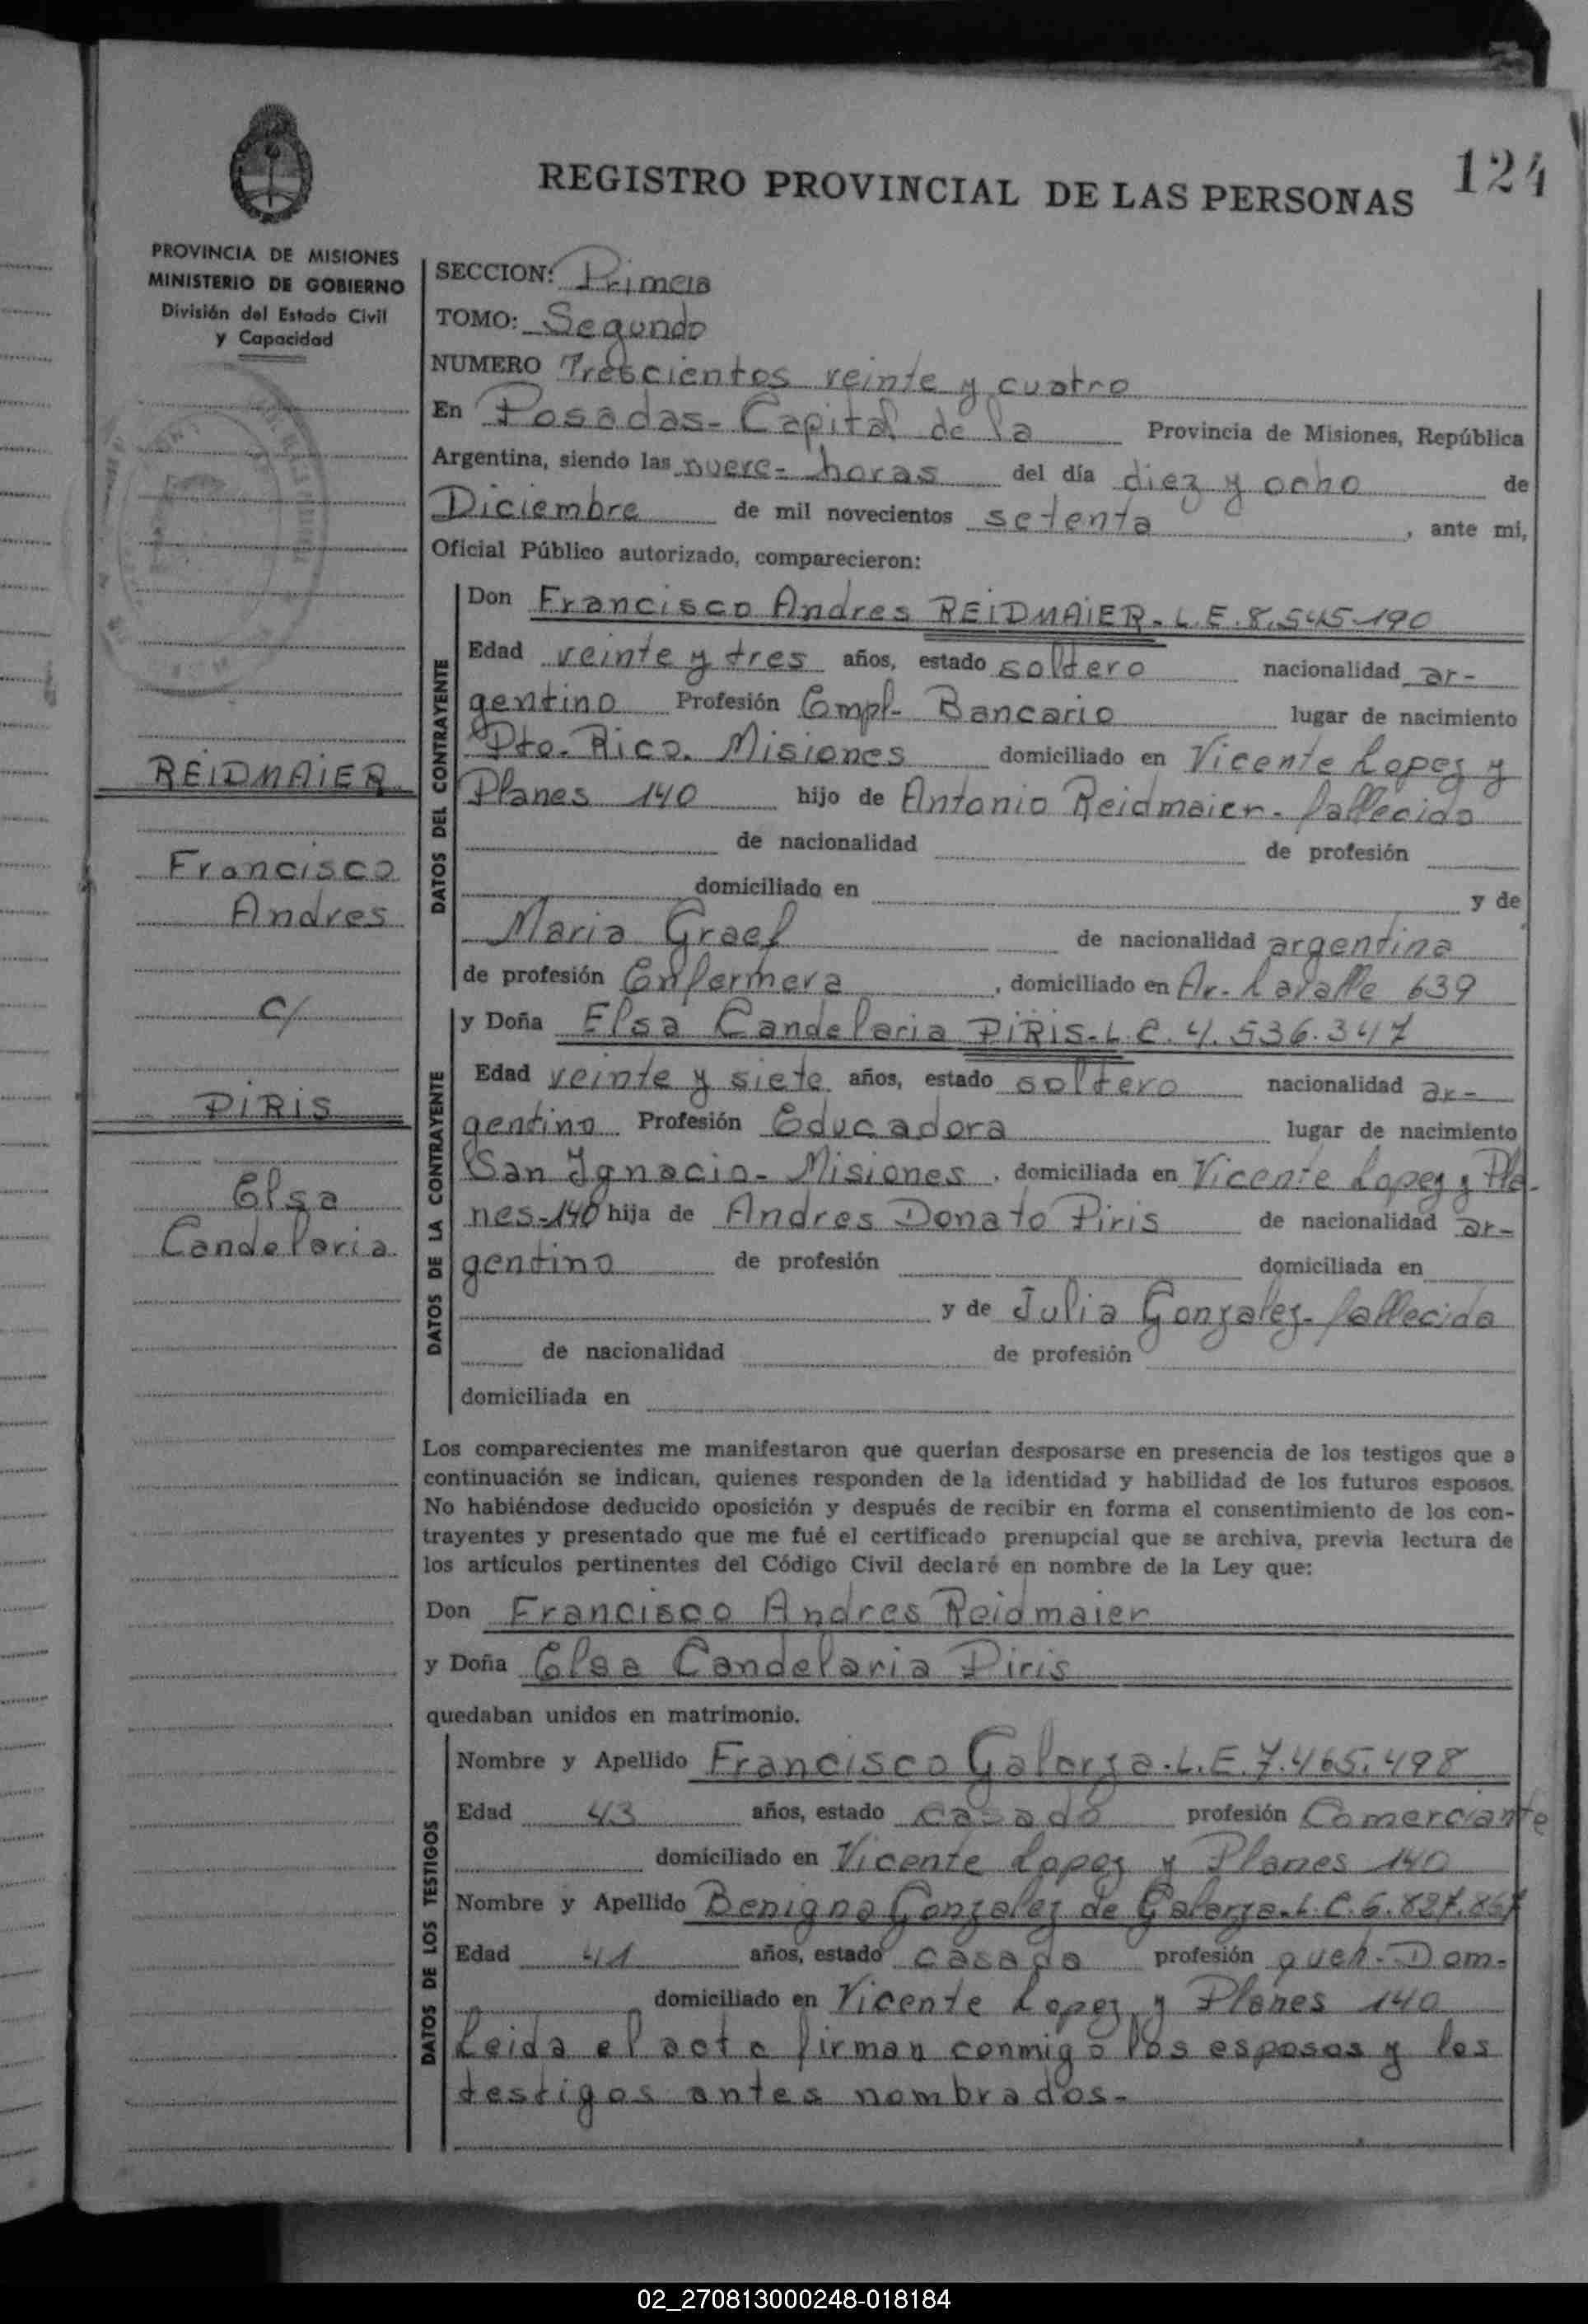 124
REGISTRO PROVINCIAL DE LAS PERSONAS
PROVINCIA DE MISIONES
MINISTERIO DE GOBIERNO
División del Estado Civil
y Capacidad
REIDMAIER
Francisco
Andres
c/
PIRIS
Elsa
Candelaria
SECCION: Primera
TOMO: Segundo
NUMERO Trescientos veinte y cuatro
En Posadas- Capital de la Provincia de Misiones, República
Argentina, siendo las nueve- horas del día diez y ocho de
Diciembre de mil novecientos setenta, ante mi,
Oficial Público autorizado, comparecieron:
DATOS DEL CONTRAYENTE
Don Francisco Andres REIDMAIER- L.E. 8.545.190
Edad veinte y tres años, estado soltero nacionalidad ar-
gentino Profesión Empl- Bancario lugar de nacimiento
Pto. Rico. Misiones domiciliado en Vicente Lopez y
Planes 140 hijo de Antonio Reidmaier- fallecido
de nacionalidad de profesión
domiciliado en y de
Maria Graef de nacionalidad argentina
de profesión Enfermera, domiciliado en Av. Lavalle 639
DATOS DE LA CONTRAYENTE
y Doña Elsa Candelaria PIRIS- L.C. 4.536.347
Edad veinte y siete años, estado soltero nacionalidad ar-
gentino Profesión Educadora lugar de nacimiento
San Ignacio- Misiones, domiciliada en Vicente Lopez y Pla-
nes-140 hija de Andres Donato Piris de nacionalidad ar-
gentino de profesión domiciliada en
y de Julia Gonzalez- fallecida
de nacionalidad de profesión
domiciliada en
Los comparecientes me manifestaron que querían desposarse en presencia de los testigos que a
continuación se indican, quienes responden de la identidad y habilidad de los futuros esposos.
No habiéndose deducido oposición y después de recibir en forma el consentimiento de los con-
trayentes y presentado que me fué el certificado prenupcial que se archiva, previa lectura de
los artículos pertinentes del Código Civil declaré en nombre de la Ley que:
Don Francisco Andres Reidmaier
y Doña Elsa Candelaria Piris
quedaban unidos en matrimonio.
DATOS DE LOS TESTIGOS
Nombre y Apellido Francisco Galarza. L.E. 7.465.498
Edad 43 años, estado casado profesión Comerciante
domiciliado en Vicente Lopez y Planes 140
Nombre y Apellido Benigna Gonzalez de Galarza. L.C. 6.827.867
Edad 41 años, estado casada profesión queh- Dom-
domiciliado en Vicente Lopez y Planes 140
Leida el acta firman conmigo los esposos y los
testigos antes nombrados-
02_270813000248-018184